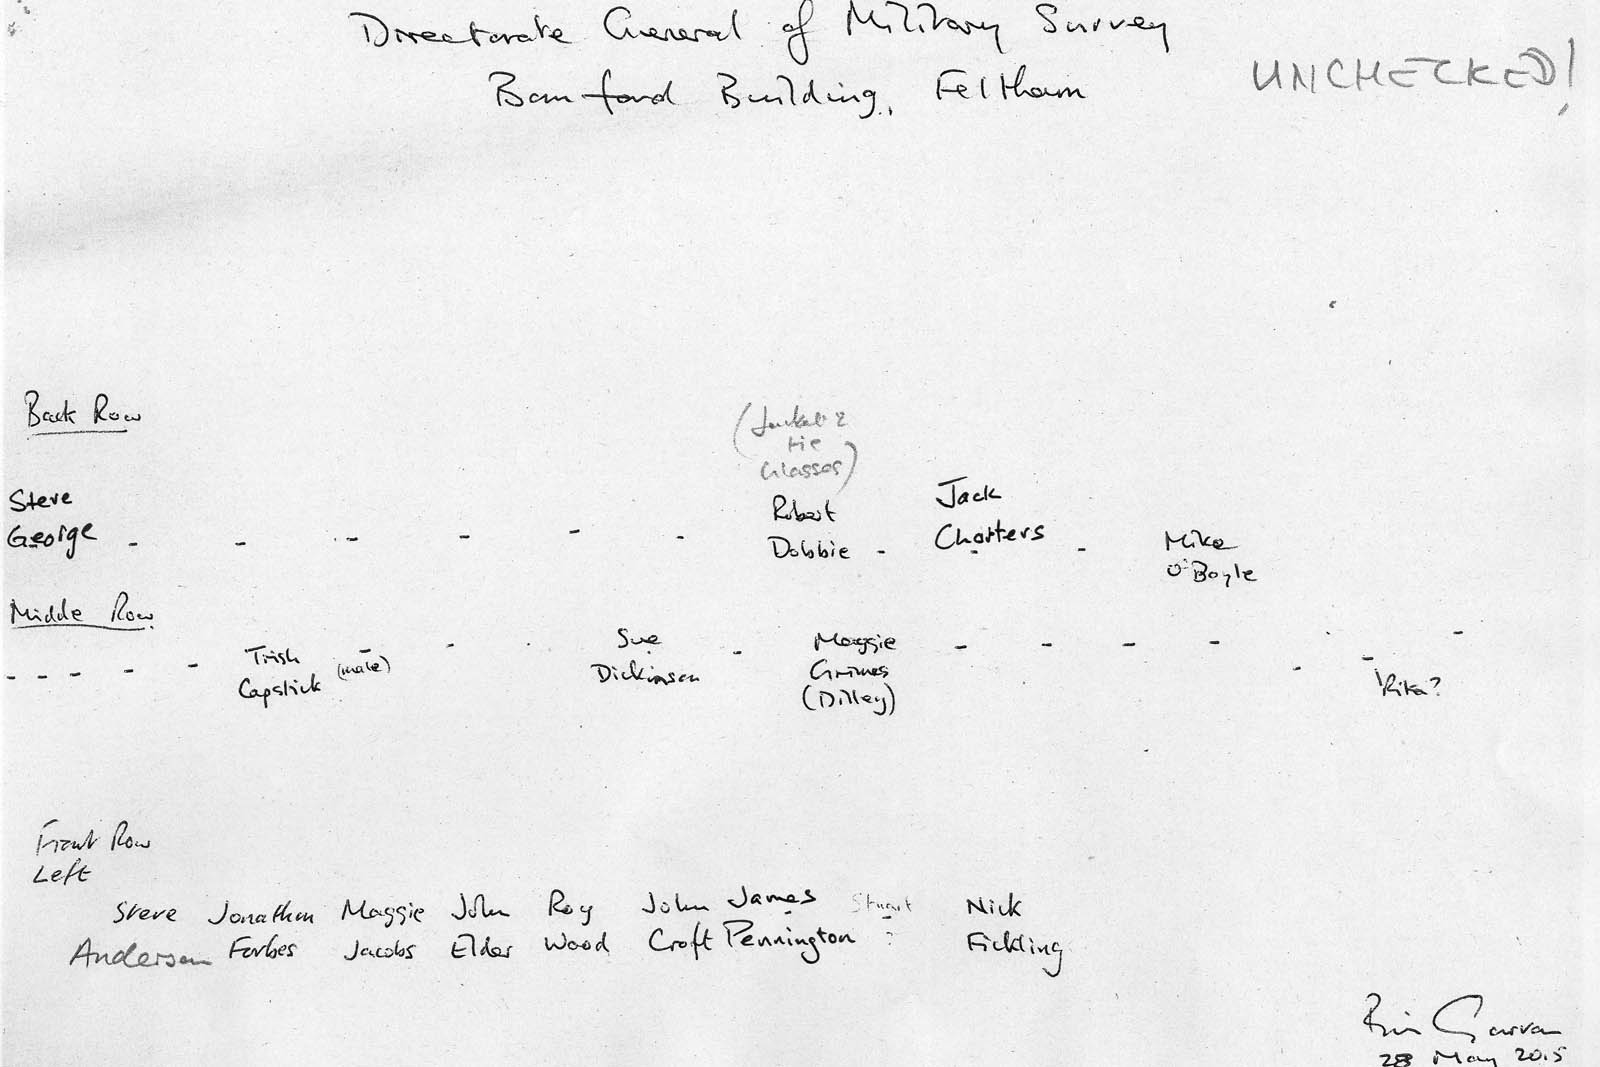 Directorate General of Military Survey
Bamford Building, Feltham
UNCHECKED!
Back Row
(Jacket &
tie
Glasses)
Steve
George - - - - - - Robert
Dobbie - Jack
Charters - Mike
O'Boyle
Middle Row
- - - - Trish
Capstick (male) - - Sue
Dickinson - Maggie
Grimes
(Dilley) - - - - - - - 'Rita?
Front Row
Left
Steve Jonathan Maggie John Roy John James Stuart Nick
Anderson Forbes Jacobs Elder Wood Croft Pennington ? Fickling
28 May 2015